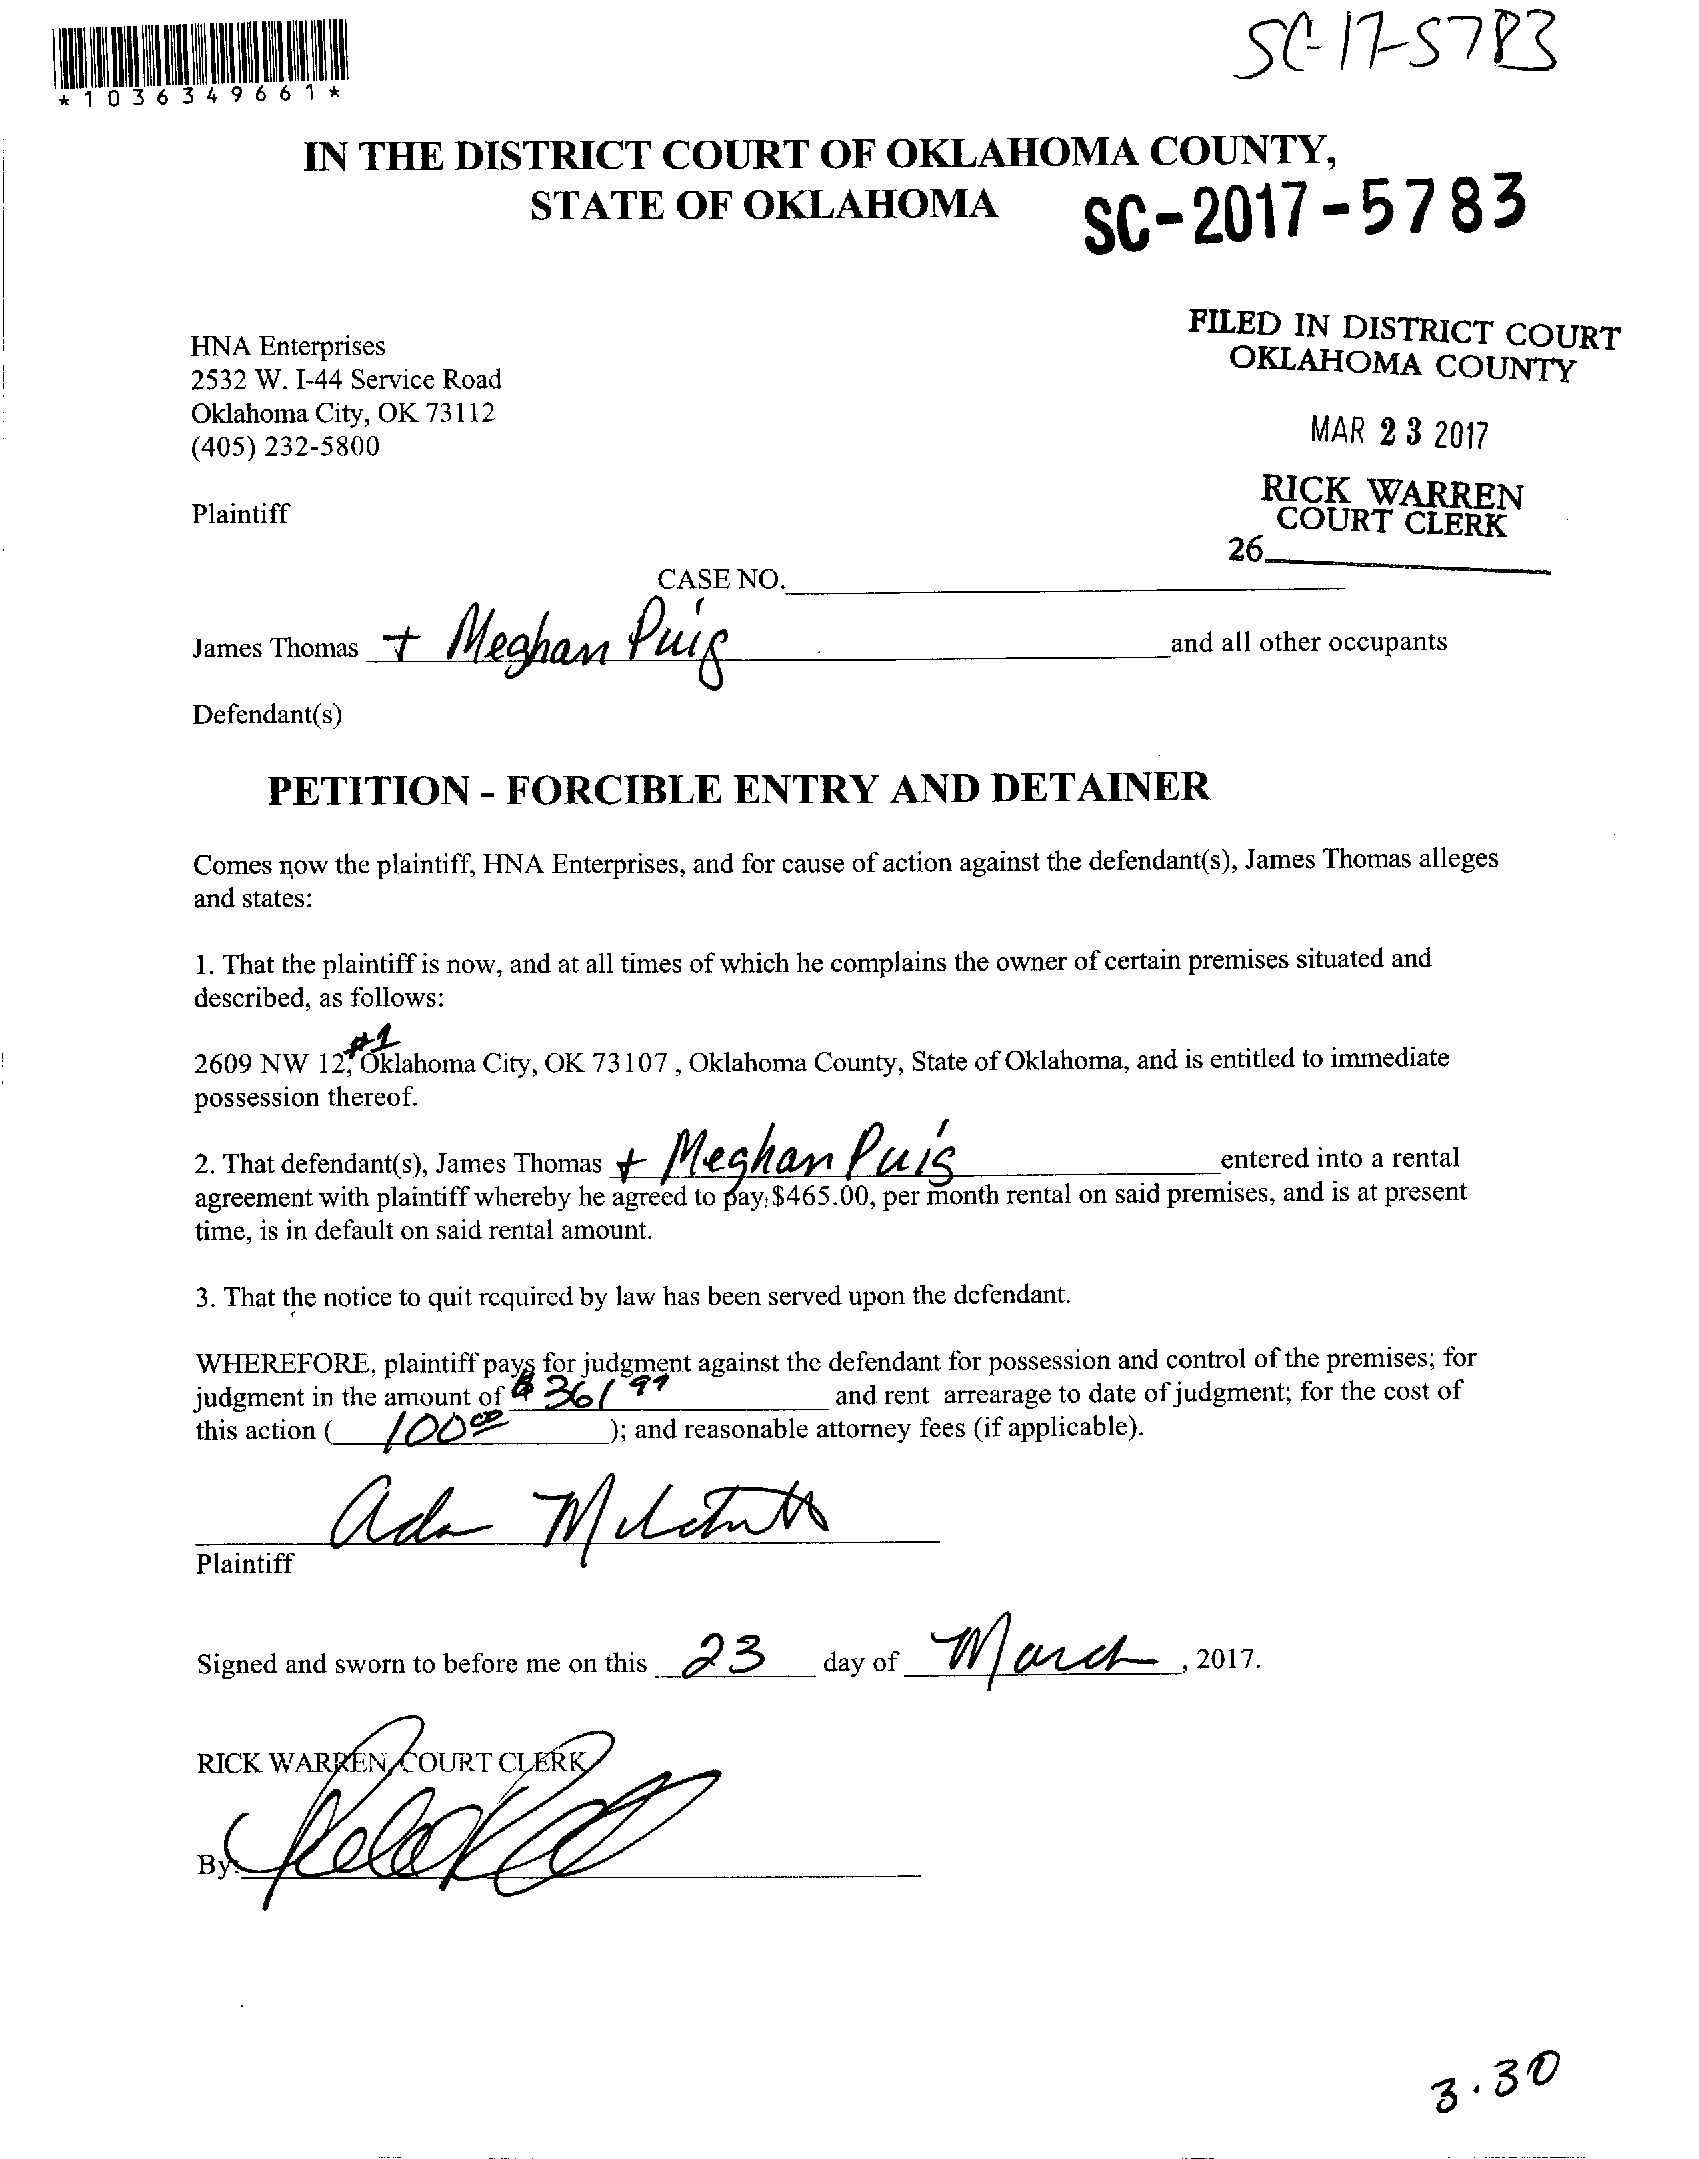 SC-17-5783
*1036349661*
IN THE DISTRICT COURT OF OKLAHOMA COUNTY,
STATE OF OKLAHOMA
SC-2017-5783
HNA Enterprises
2532 W. I-44 Service Road
Oklahoma City, OK 73112
(405) 232-5800
Plaintiff
FILED IN DISTRICT COURT
OKLAHOMA COUNTY
MAR 23 2017
RICK WARREN
COURT CLERK
26
CASE NO.
James Thomas + Meghan Puig and all other occupants
Defendant(s)
PETITION - FORCIBLE ENTRY AND DETAINER
Comes now the plaintiff, HNA Enterprises, and for cause of action against the defendant(s), James Thomas alleges
and states:
1. That the plaintiff is now, and at all times of which he complains the owner of certain premises situated and
described, as follows:
2609 NW 12, #1 Oklahoma City, OK 73107 , Oklahoma County, State of Oklahoma, and is entitled to immediate
possession thereof.
2. That defendant(s), James Thomas + Meghan Puig entered into a rental
agreement with plaintiff whereby he agreed to pay $465.00, per month rental on said premises, and is at present
time, is in default on said rental amount.
3. That the notice to quit required by law has been served upon the defendant.
WHEREFORE, plaintiff pays for judgment against the defendant for possession and control of the premises; for
judgment in the amount of $361 99 and rent arrearage to date of judgment; for the cost of
this action ( 100 00 ); and reasonable attorney fees (if applicable).
Plaintiff
Signed and sworn to before me on this 23 day of March, 2017.
RICK WARREN, COURT CLERK
By:
3.30